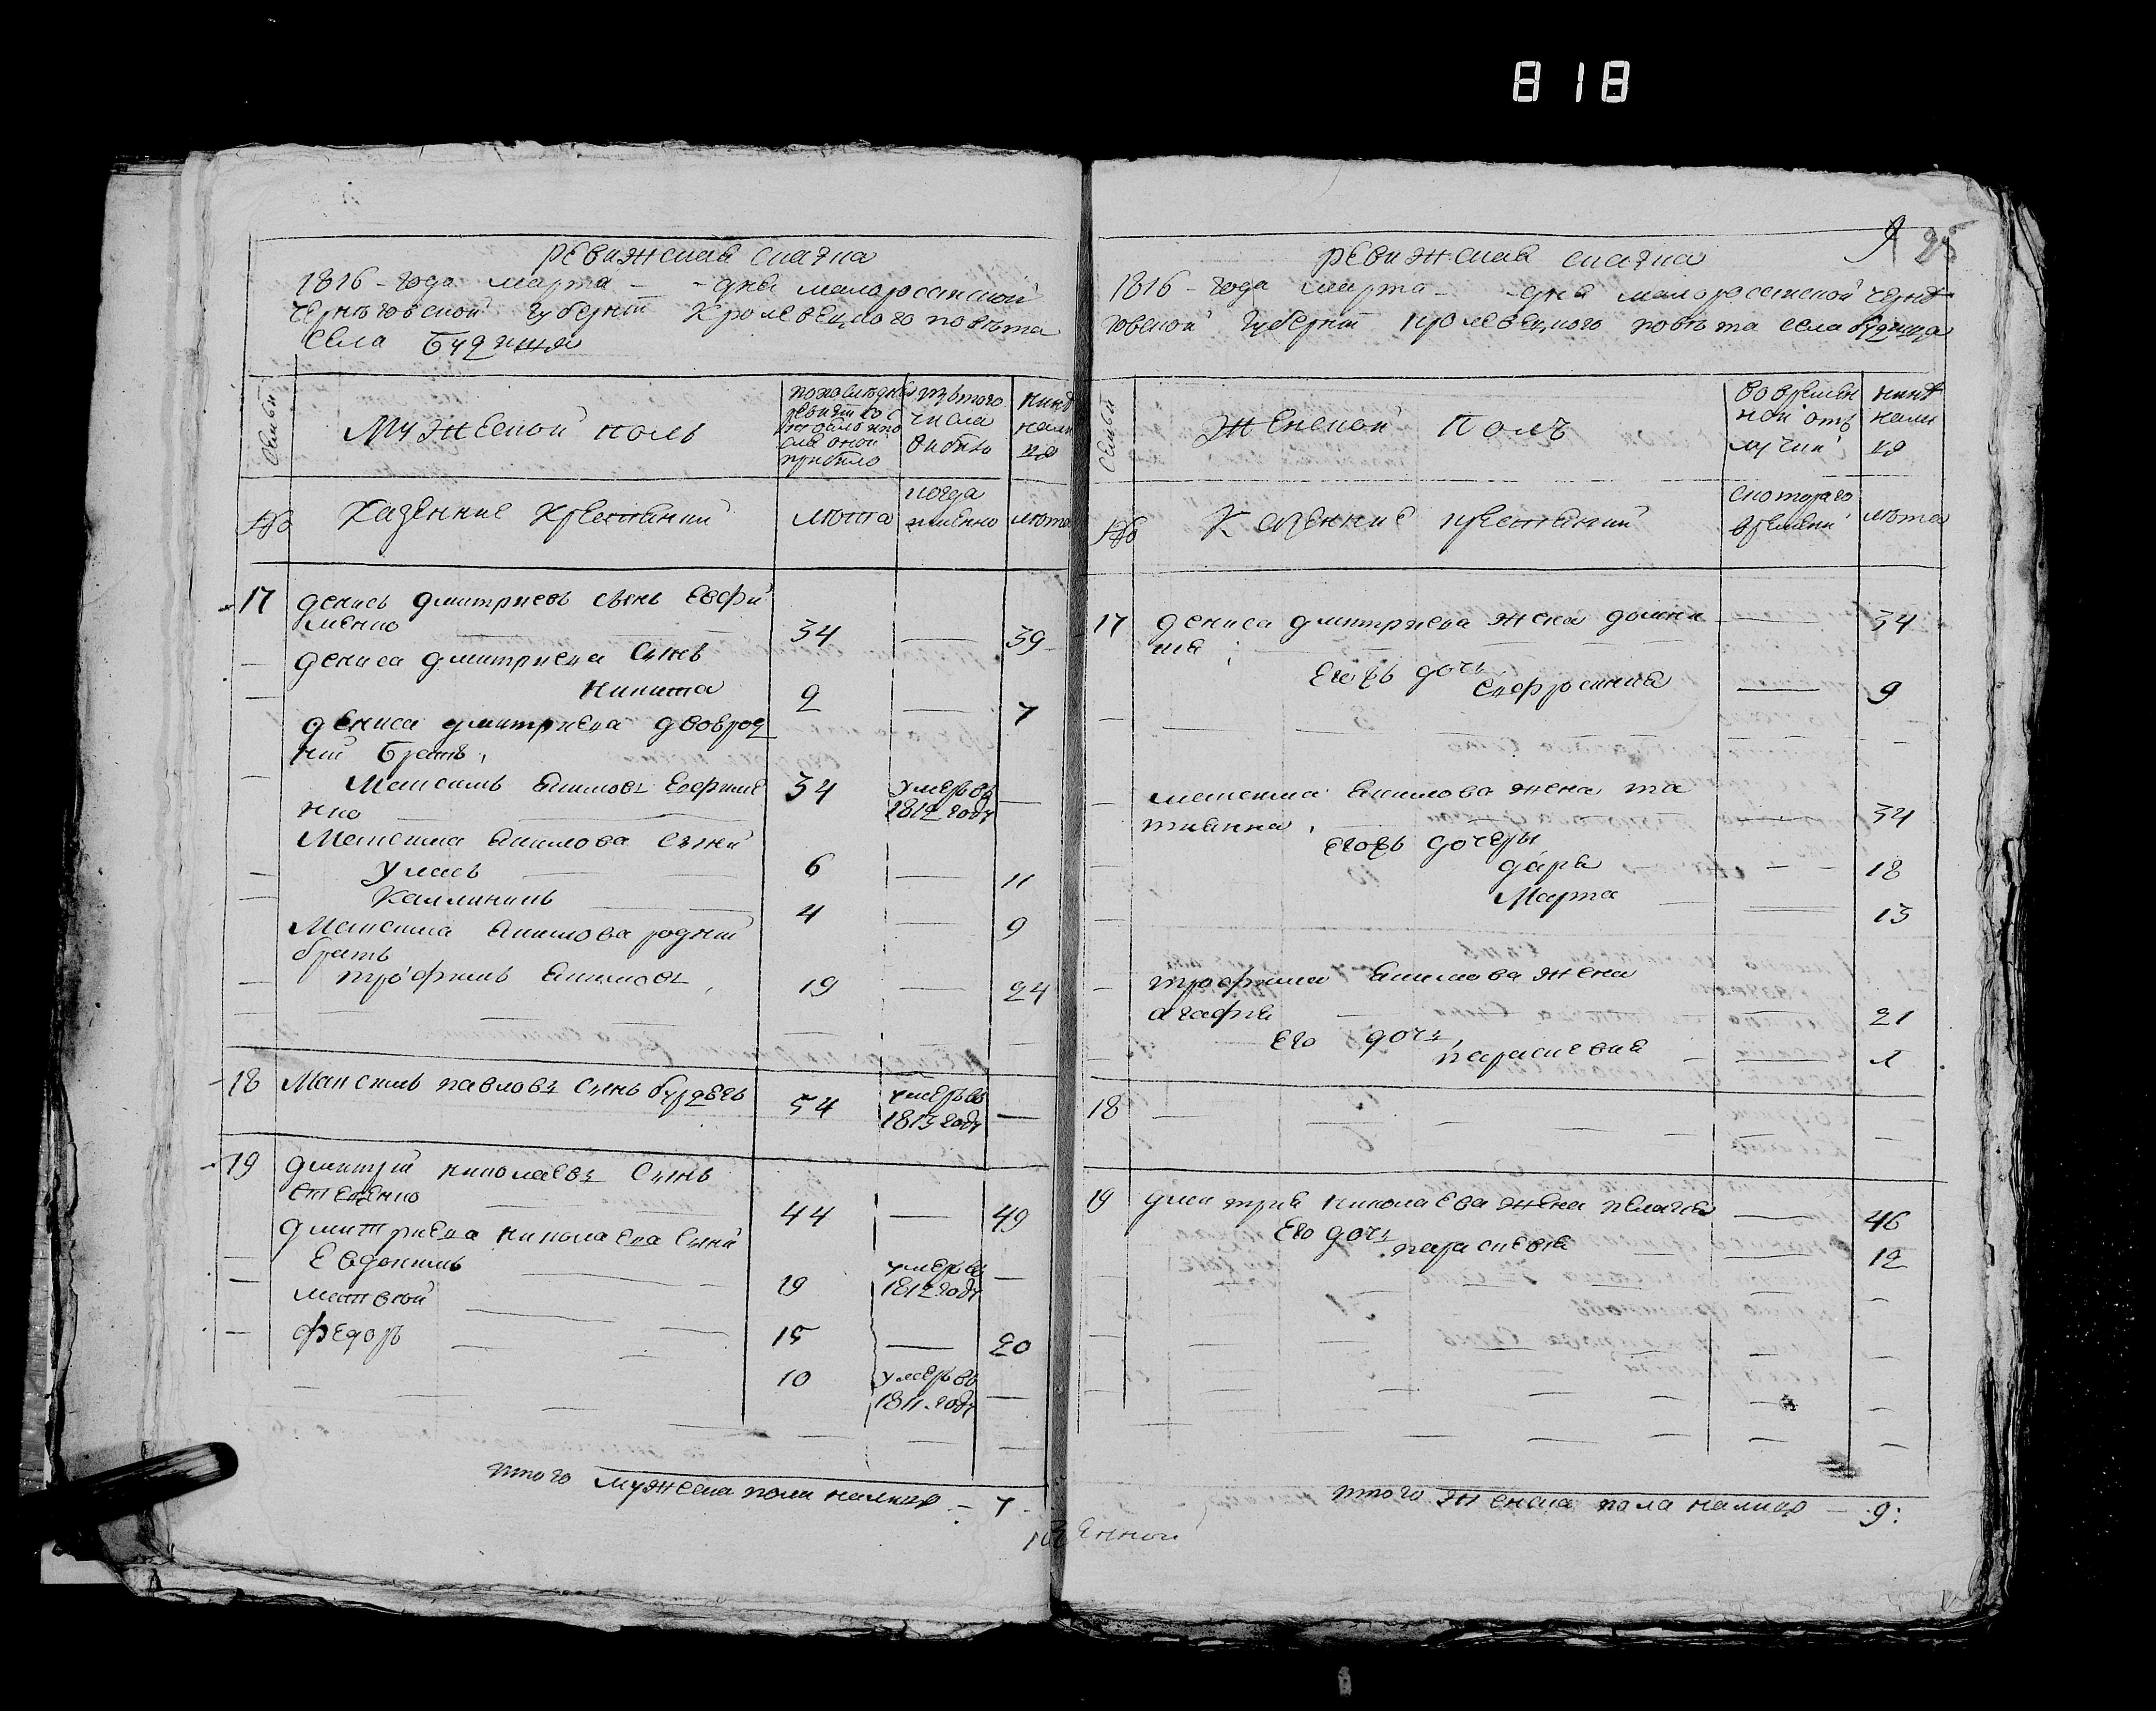 818
ревижская сказка
1816 - года марта - - дня малороссийской
Черниговской губернии Кролевецкого повета
села Будища
семьи
Мужеской полъ
по последней
ревизии со
стояло и по
сле оной
прибыло
изъ того
числа
выбыло
ныне
нали
цо
№
Казенние крестьянии
лета
когда
именно
лета
17 денисъ дмитриевъ сынъ Еефи
менко 34 — 39
дениса дмитриева сынъ
никита 2 — 7
дениса дмитриева двоврод
ний братъ,
Максимъ Акимовъ Еефиме
нко 34 умеръ въ
1812 году —
Максима Акимова сыни
Уласъ 6 — 11
Каллиникъ 4 — 9
Максима Акимова родний
братъ
трофимъ Акимовъ 19 — 24
18 Максимъ павловъ сынъ бурдегъ 54 умеръ въ
1813 году —
19 дмитрий николаевъ сынъ
44 — 49
дмитриева николаева сыни
Евдокимъ 19 умеръ въ
1812 году —
матвей 15 — 20
федоръ 10 умеръ въ
1811 году —
итого мужеска пола налицо - 7
9 25
ревижская сказка
1816 - года марта - - дня малороссийской Черни
говской губернии кролевецкого повета села будища
семьи
Женской Полъ
во времен
ной отъ
лучки
ныне
нали
цо
№
Казенние крестьянии
с которого
времени
лета
17 дениса дмитриева жена домни
кия — 34
еговъ дочъ
Еефросиния — 9
максима Акимова жена та
тиянна — 34
еговъ дочеры
дарья — 18
Марта — 13
трофима Акимова жена
агафия — 21
Его дочъ,
параскевия — 1
18 —
19 дмитрия николаева жена пелагея — 46
Его дочъ
параскевия — 12
итого женска пола налицо — 9: